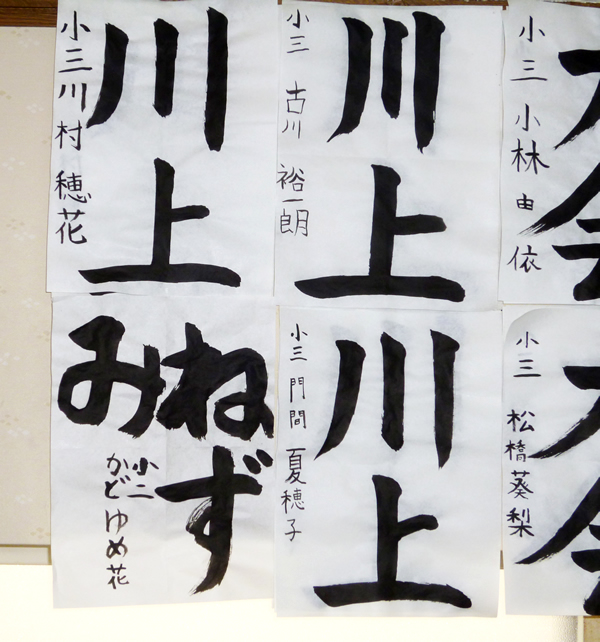 川上
小三 川村 穂花
川上
小三 古川 裕一朗
大会
小三 小林 由依
ねず
み
小二
かどゆめ花
川上
小三 門間 夏穂子
大会
小三 松橋 葵梨